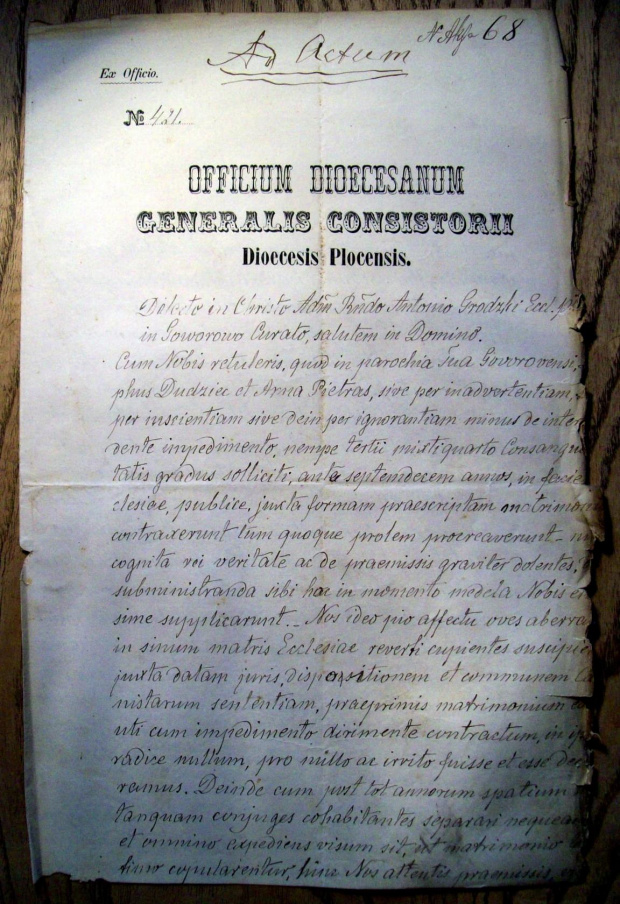 Ad Actum
68
Ex Officio.
№ 421.
OFFICIUM DIOECESANUM
GENERALIS CONSISTORII
Dioecesis Plocensis.
Dilecto in Christo Adm̃ Rñdo Antonio Grodzki Eccl.
in Goworowo Curato, salutem in Domino.
Cum Nobis retuleris, quod in parochia sua Govorovensi,
phus Dudziec et Anna Pietras, sive per inadvertentiam,
per inscientiam sive dein per ignorantiam minus de inter
dente impedimento, nempe tertii mixti quarto Consangui
tatis gradus solliciti, ante septemdecem annos, in facie
clesiae, publice, juxta formam praescriptam matrimoni
contraxerunt tum quoque prolem procreaverunt –
cognita rei veritate ac de praemissis graviter dolentes,
subministranda sibi hoc in momento medela Nobis
sime supplicarunt – Nos ideo pio affectu oves aberra
in sinum matris Ecclesiae reverti cupientes suscipie
juxta datam juris, dispositionem et communem Ca
nistarum sententiam, praeprimis matrimonium
uti cum impedimento dirimente contractum, in
radice nullum, pro nullo ac irrito fuisse et esse dec
ramus. Deinde cum post tot annorum spatium
tanquam conjuges cohabitantes separari nequea
et omnino expediens visum sit, ut matrimonio
timo copularentur, hinc Nos attentis praemissis,